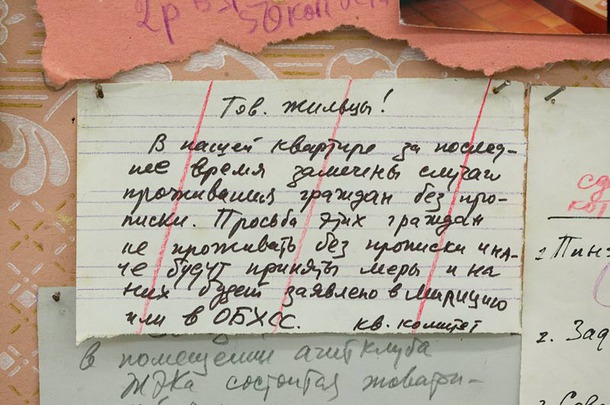 2р 50коп
Тов. жильцы!
В нашей квартире за послед-
нее время замечены случаи
проживания граждан без про-
писки. Просьба этих граждан
не проживать без прописки ина-
че будут приняты меры и на
них будет заявлено в милицию
или в ОБХСС. кв. комитет
в помещении агитклуба
ЖЭКа состоится товари-
1 Пин
2. Зад